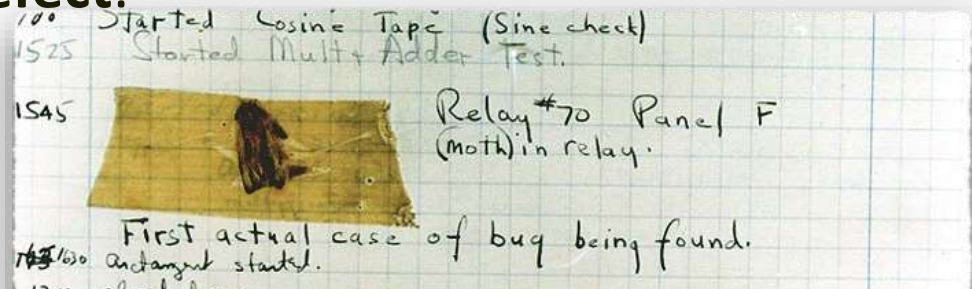 Started Cosine Tape (Sine check)
1525 Started Mult + Adder Test.
1545 Relay #70 Panel F
(moth) in relay.
First actual case of bug being found.
1630 arctangent started.